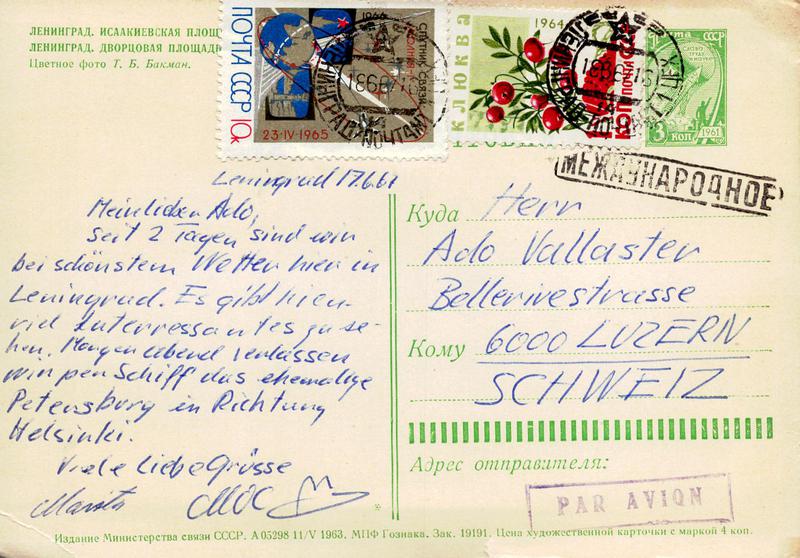 ЛЕНИНГРАД. ИСААКИЕВСКАЯ ПЛОЩ
ЛЕНИНГРАД. ДВОРЦОВАЯ ПЛОЩАДЬ
Цветное фото Т. Б. Бакман.
ПОЧТА СССР 10к
1966
СПУТНИК СВЯЗИ
23·IV·1965
КЛЮКВА
1964
почта СССР
СЛОВО
3
коп
1961
МЕЖДУНАРОДНОЕ
Leningrad 17.6.61
Mein lieber Ado,
Seit 2 Tagen sind wir
bei schönstem Wetter hier in
Leningrad. Es gibt hier
viel Interressantes zu se-
hen. Morgen abend verlassen
wir per Schiff das ehemalige
Petersburg in Richtung
Helsinki.
Viele liebe Grüsse
Куда Herr
Ado Vallaster
Bellerivestrasse
Кому 6000 LUZERN
SCHWEIZ
Адрес отправителя:
PAR AVION
Издание Министерства связи СССР. А 05298 11/V 1963. МПФ Гознака. Зак. 19191. Цена художественной карточки с маркой 4 коп.